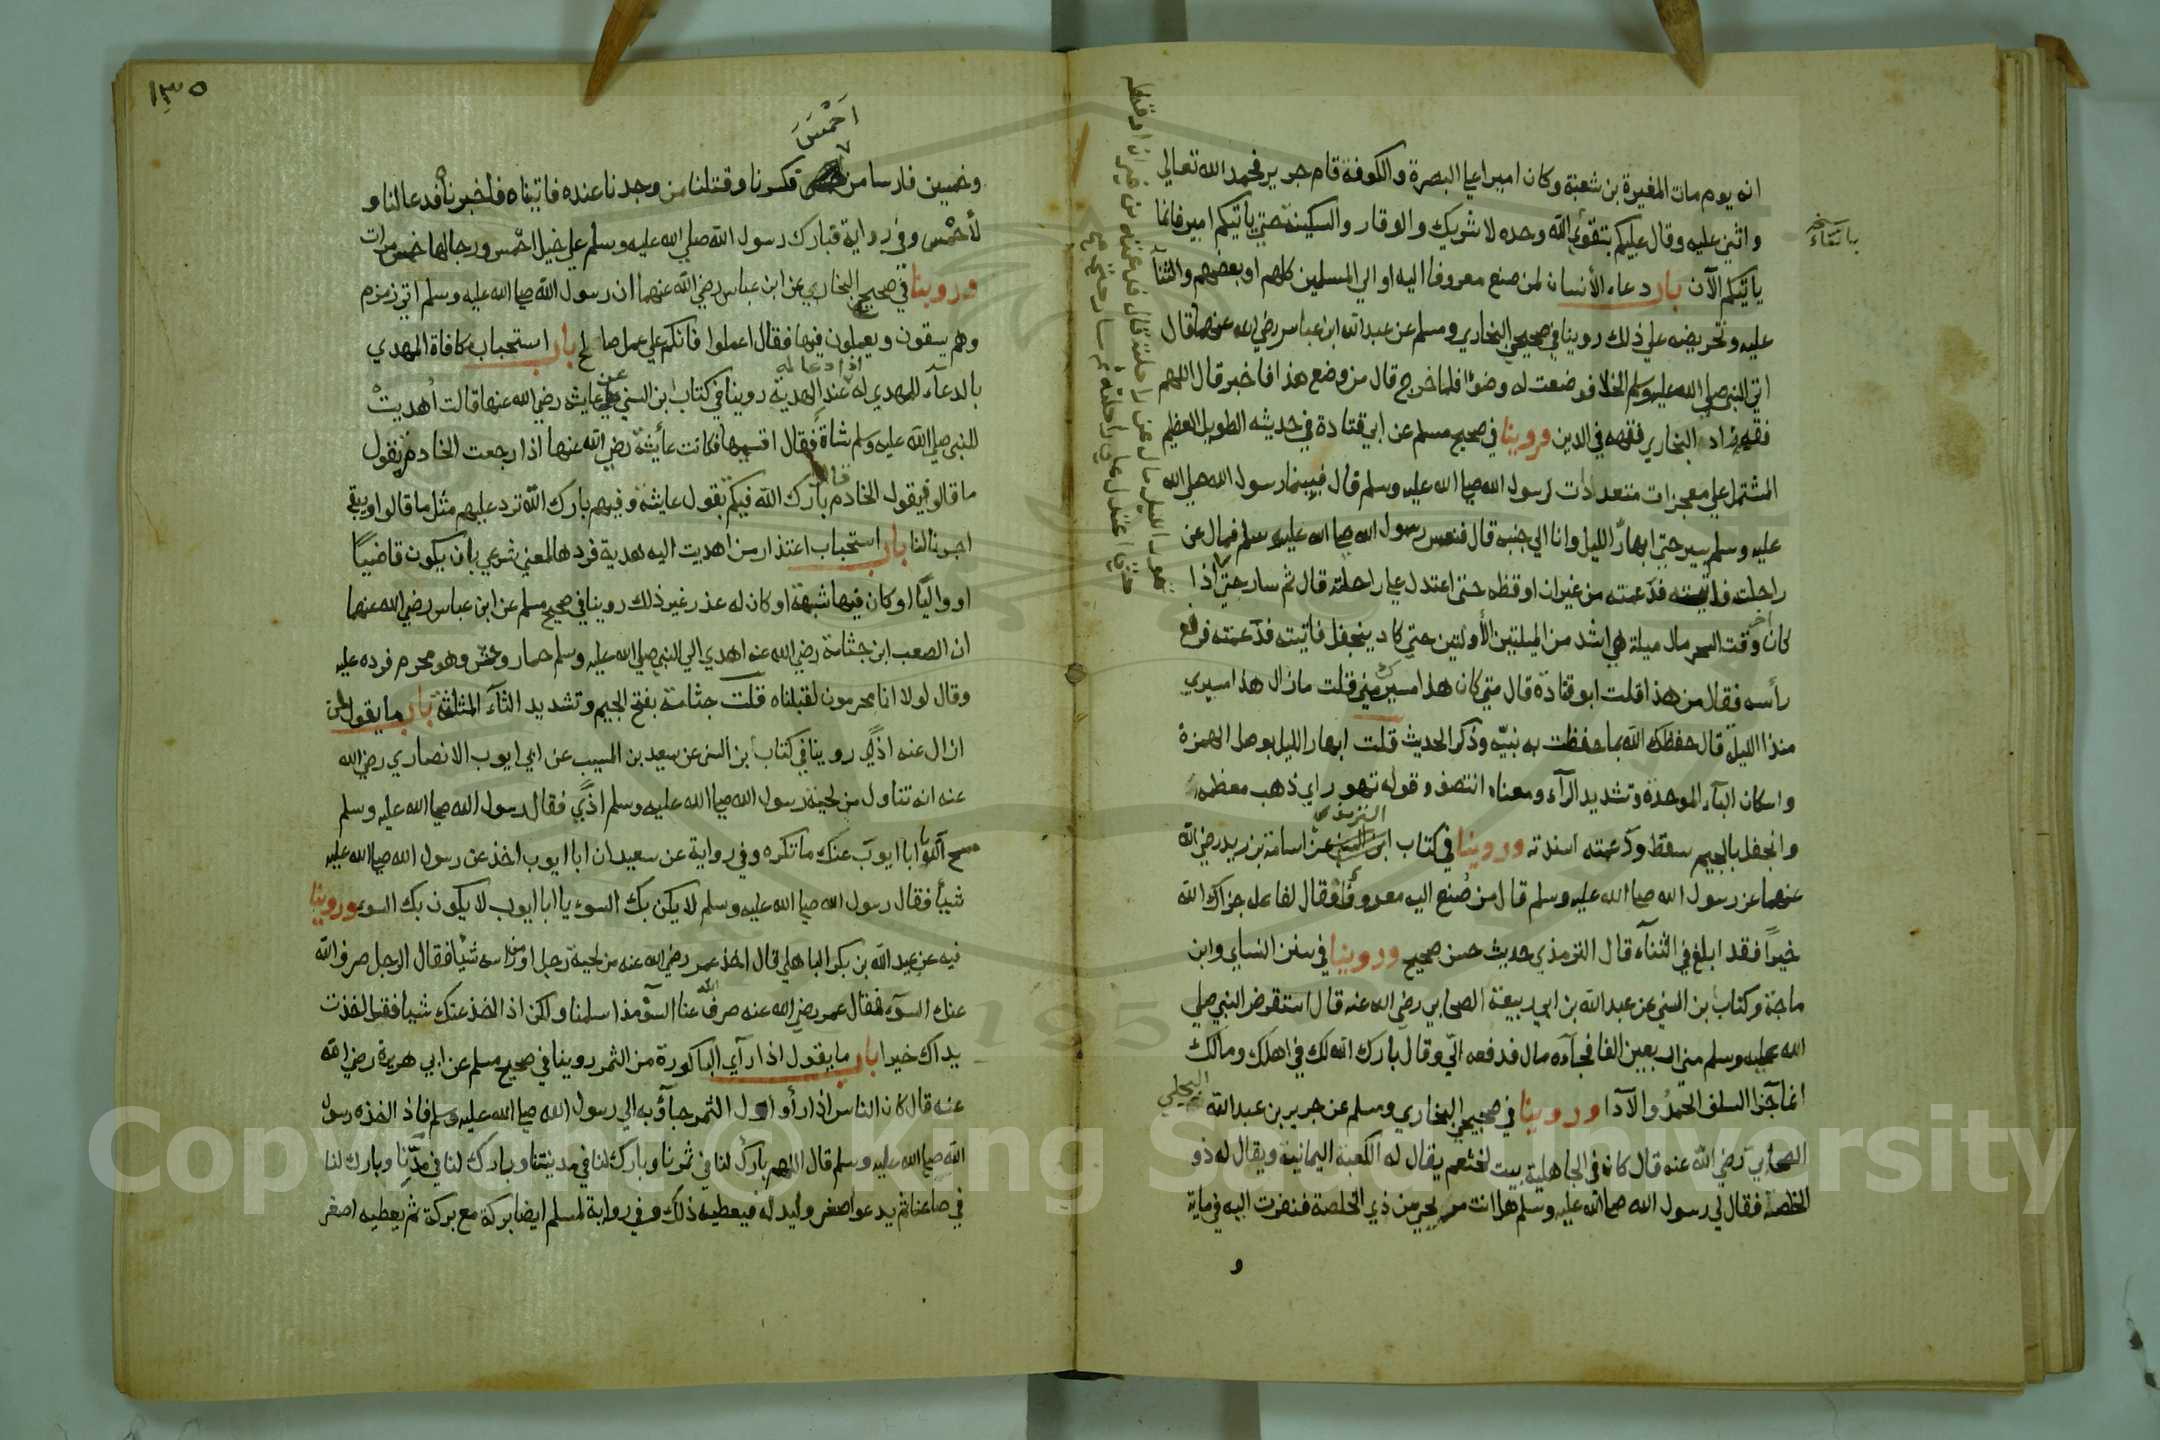 انه يوم مات المغيرة بن شعبة وكان اميرا علي البصرة والكوفة قام جرير فحمد الله تعالي
واثني عليه وقال عليكم بتقوي الله وحده لا شريك له والوقار والسكينة حتي ياتيكم امير فانما
ياتيكم الآن باب دعاء الأنسان لمن صنع معروفا اليه او الي المسلمين كلهم او بعضهم والثنآ
عليه وتحريضه علي ذلك روينا في صحيحي البخاري ومسلم عن عبد الله ابن عباس رضي الله عنهما قال
اتي النبي صلي الله عليه وسلم الخلا فوضعت له وضوءا فلما خرج قال من وضع هذا فاخبر قال اللهم
فقهه زاد البخاري فقهه في الدين وروينا في صحيح مسلم عن ابي قتادة في حديثه الطويل العظيم
المشتمل علي معجزات متعددات لرسول الله صلي الله عليه وسلم قال فبينما رسول الله صلي الله
عليه وسلم يسير حتي ابهار الليل وانا الي جنبه قال فنعس رسول الله صلي الله عليه وسلم فمال عن
راحلته فاتيته فدعمته من غير ان اوقظه حتى اعتدل علي راحلته قال ثم سار حتي اذا
كان اخر وقت السحر مال ميلة هي اشد من الميلتين الأولتين حتي كاد ينجفل فاتيته فدعمته فرفع
رأسه فقال من هذا قلت ابو قتادة قال متي كان هذا مسيرك مني قلت مازال هذا مسيري
منذ الليلة قال حفظك الله بما حفظت به نبيه وذكر الحديث قلت ابهار الليل بوصل الهمزة
واسكان البآء الموحدة وتشديد الرآء ومعناه انتصف وقوله تهور اي ذهب معظمه
وانجفل بالجيم سقط ودعمته اسندته وروينا في كتاب الترمذي عن اسامة بن زيد رضي الله
عنهما عن رسول الله صلي الله عليه وسلم قال من صنع اليه معروفا فقال لفاعله جزاك الله
خيرا فقد ابلغ في الثنآء قال الترمذي حديث حسن صحيح وروينا في سنن النساي وابن
ماجة وكتاب بن السني عن عبد الله بن ابي ربيعة الصحابي رضي الله عنه قال استقرض النبي صلي
الله عليه وسلم مني اربعين الفا فجآءه مال فدفعه الي وقال بارك الله لك في اهلك ومالك
انما جزا السلف الحمد والآدا وروينا في صحيحي البخاري ومسلم عن جرير بن عبد الله البجلي
الصحابي رضي الله عنه قال كان في الجاهلية بيت لخثعم يقال له الكعبة اليمانية ويقال له ذو
الخلصة فقال لي رسول الله صلي الله عليه وسلم هل انت مريحي من ذي الخلصة فنفرت اليه في ماية
و
١٣٥
اَحْمَسَ
وخمسين فارسا من فكسرنا وقتلنا من وجدنا عنده فاتيناه فاخبرناه فدعا لنا و
لأحمس وفي رواية فبارك رسول الله صلي الله عليه وسلم علي خيل احمس ورجالها خمس مرات
وروينا في صحيح البخاري عن ابن عباس رضي الله عنهما ان رسول الله صلي الله عليه وسلم اتي زمزم
وهم يسقون ويعملون فيها فقال اعملوا فانكم علي عمل صالح باب استحباب مكافاة المهدي
بالدعآء للمهدي له اذا دعا له عند الهدية روينا في كتاب بن السني عن عايشة رضي الله عنها قالت اهديت
للنبي صلي الله عليه وسلم شاة فقال اقسميها فكانت عائشة رضي الله عنها اذا رجعت الخادم تقول
ما قالوا فيقول الخادم قالوا بارك الله فيكم تقول عايشة وفيهم بارك الله نرد عليهم مثل ما قالوا ويبقي
اجرنا لنا باب استحباب اعتذار من اهديت اليه هدية فردها لمعني شرعي بان يكون قاضيا
او واليا او كان فيها شبهة او كان له عذر غير ذلك روينا في صحيح مسلم عن ابن عباس رضي الله عنهما
ان الصعب ابن جثامة رضي الله عنه اهدي الي النبي صلي الله عليه وسلم حمار وحش وهو محرم فرده عليه
وقال لولا انا محرمون لقبلناه قلت جثامة بفتح الجيم وتشديد الثآء المثلثة باب ما يقول لمن
ازال عنه اذي روينا في كتاب بن السني عن سعيد بن المسيب عن ابي ايوب الانصاري رضي الله
عنه انه تناول من لحية رسول الله صلي الله عليه وسلم اذي فقال رسول الله صلي الله عليه وسلم
مسح الله يا ابا ايوب عنك ما تكره وفي رواية عن سعيد ان ابا ايوب اخذ عن رسول الله صلي الله عليه
شيأ فقال رسول الله صلي الله عليه وسلم لا يكن بك السوء يا ابا ايوب لا يكون بك السوء وروينا
فيه عن عبد الله بن بكر الباهلي قال اخذ عمر رضي الله عنه من لحية رجل او راسه شيأ فقال الرجل صرف الله
عنك السوء فقال عمر رضي الله عنه صرف الله عنا السوء مذ اسلمنا ولكن اذا اخذ عنك شيأ فقل اخذت
يداك خيرا باب ما يقول اذا رآي الباكورة من الثمر روينا في صحيح مسلم عن ابي هريرة رضي الله
عنه قال كان الناس اذا رأوا اول الثمر جاؤا به الي رسول الله صلي الله عليه وسلم فاذا اخذه رسول
الله صلي الله عليه وسلم قال اللهم بارك لنا في ثمرنا وبارك لنا في مدينتنا وبارك لنا في مدنا وبارك لنا
في صاعنا ثم يدعو اصغر وليد له فيعطيه ذلك وفي رواية لمسلم ايضا بركة مع بركة ثم يعطيه اصغر
Copyright © King Saud University
195